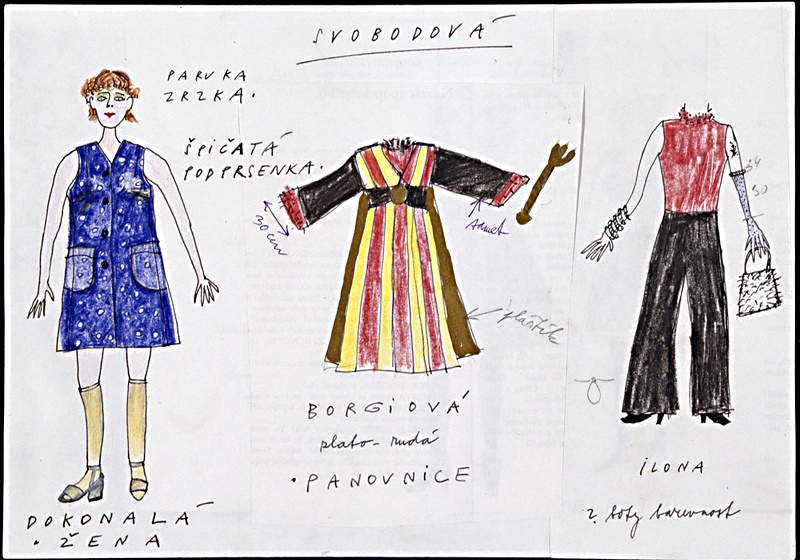 SVOBODOVÁ
PARUKA
ZRZKA.
ŠPIČATÁ
PODPRSENKA.
30 cm
samet
plaštík
34
50
BORGIOVÁ
plato-rudá
. PANOVNICE
ILONA
2. boty barevnost
DOKONALÁ
. ŽENA